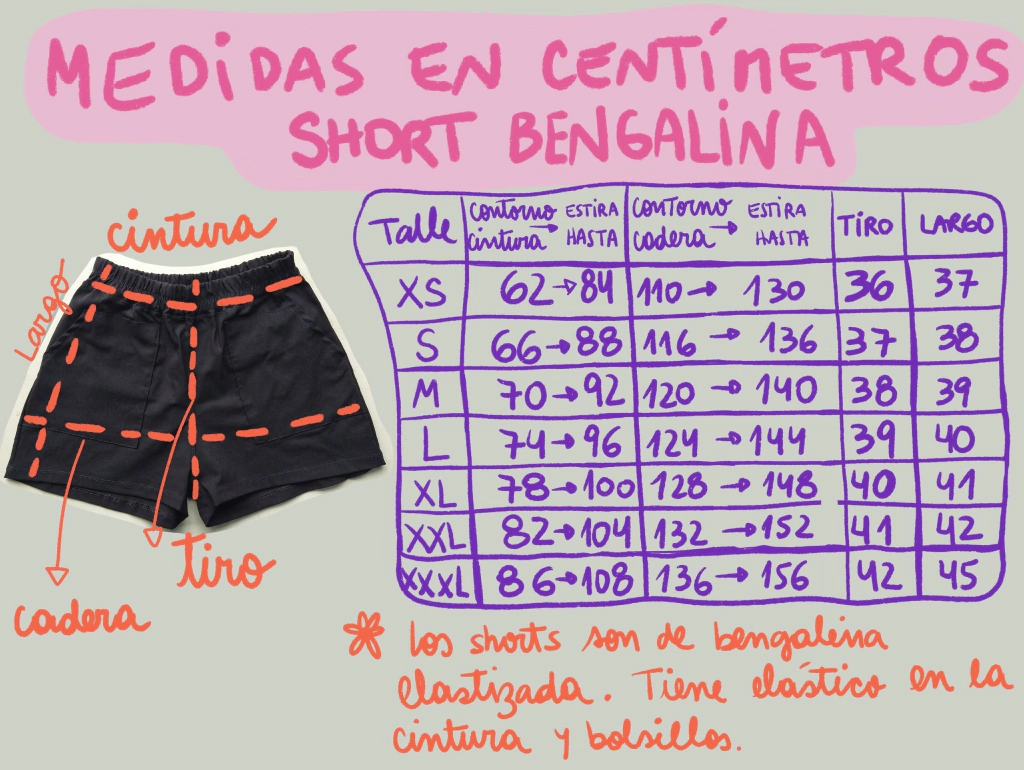 MEDIDAS EN CENTÍMETROS
SHORT BENGALINA
cintura
Largo
cadera
tiro
Talle contorno cintura → ESTIRA HASTA contorno cadera → ESTIRA HASTA TIRO LARGO
XS 62 → 84 110 → 130 36 37
S 66 → 88 116 → 136 37 38
M 70 → 92 120 → 140 38 39
L 74 → 96 124 → 144 39 40
XL 78 → 100 128 → 148 40 41
XXL 82 → 104 132 → 152 41 42
XXXL 86 → 108 136 → 156 42 45
* los shorts son de bengalina
elastizada. Tiene elástico en la
cintura y bolsillos.